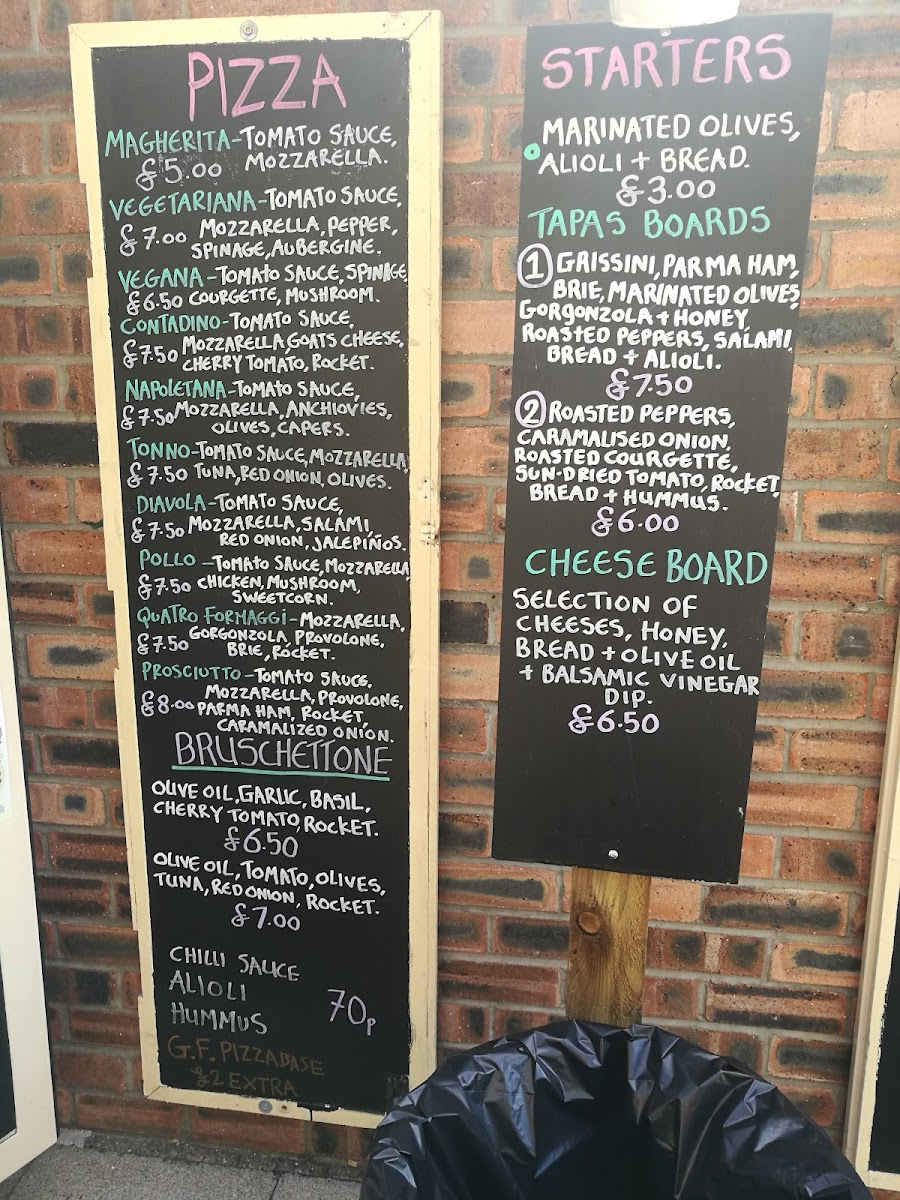 PIZZA
MAGHERITA-TOMATO SAUCE,
£5.00 MOZZARELLA.
VEGETARIANA-TOMATO SAUCE,
£7.00 MOZZARELLA, PEPPER,
SPINAGE, AUBERGINE.
VEGANA-TOMATO SAUCE, SPINAGE
£6.50 COURGETTE, MUSHROOM.
CONTADINO-TOMATO SAUCE,
£7.50 MOZZARELLA, GOATS CHEESE,
CHERRY TOMATO, ROCKET.
NAPOLETANA-TOMATO SAUCE,
£7.50 MOZZARELLA, ANCHIOVIES,
OLIVES, CAPERS.
TONNO-TOMATO SAUCE, MOZZARELLA,
£7.50 TUNA, RED ONION, OLIVES.
DIAVOLA-TOMATO SAUCE,
£7.50 MOZZARELLA, SALAMI,
RED ONION, JALEPIÑOS.
POLLO -TOMATO SAUCE, MOZZARELLA
£7.50 CHICKEN, MUSHROOM,
SWEETCORN.
QUATRO FORMAGGI-MOZZARELLA,
£7.50 GORGONZOLA, PROVOLONE,
BRIE, ROCKET.
PROSCIUTTO-TOMATO SAUCE,
MOZZARELLA, PROVOLONE,
£8.00 PARMA HAM, ROCKET,
CARAMALIZED ONION.
BRUSCHETTONE
OLIVE OIL, GARLIC, BASIL,
CHERRY TOMATO, ROCKET.
£6.50
OLIVE OIL, TOMATO, OLIVES,
TUNA, RED ONION, ROCKET.
£7.00
CHILLI SAUCE
ALIOLI 70p
HUMMUS
G.F. PIZZABASE
£2 EXTRA
STARTERS
MARINATED OLIVES,
ALIOLI + BREAD.
£3.00
TAPAS BOARDS
1 GRISSINI, PARMA HAM,
BRIE, MARINATED OLIVES,
GORGONZOLA + HONEY,
ROASTED PEPPERS, SALAMI,
BREAD + ALIOLI.
£7.50
2 ROASTED PEPPERS,
CARAMALISED ONION,
ROASTED COURGETTE,
SUN-DRIED TOMATO, ROCKET,
BREAD + HUMMUS.
£6.00
CHEESE BOARD
SELECTION OF
CHEESES, HONEY,
BREAD + OLIVE OIL
+ BALSAMIC VINEGAR
DIP.
£6.50